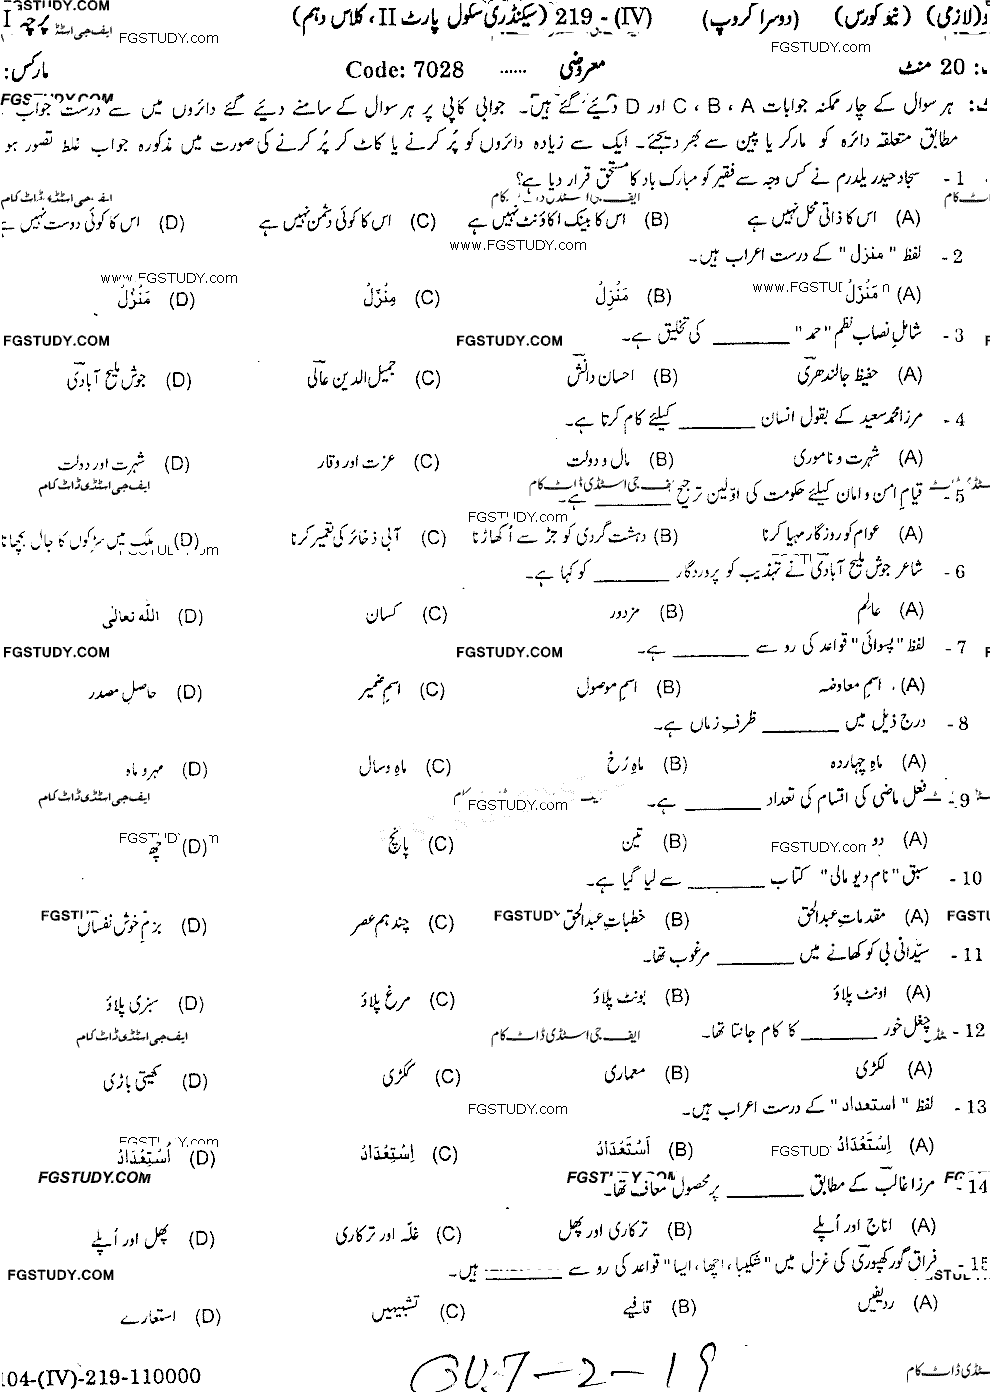 FGSTUDY.COM
(لازمی) (نیو کورس) (دوسرا گروپ) (IV) - 219 (سیکنڈری سکول پارٹ II، کلاس دہم) پرچہ I
ایف جی اسٹڈی FGSTUDY.com FGSTUDY.com
20 منٹ معروضی ...... Code: 7028 مارکس:
FGSTUDY.COM
ہر سوال کے چار ممکنہ جوابات A ، B ، C اور D دیئے گئے ہیں۔ جوابی کاپی پر ہر سوال کے سامنے دیئے گئے دائروں میں سے درست جواب
مطابق متعلقہ دائرہ کو مارکر یا پین سے بھر دیجئے۔ ایک سے زیادہ دائروں کو پُر کرنے یا کاٹ کر پُر کرنے کی صورت میں مذکورہ جواب غلط تصور ہو
1 - سجاد حیدر یلدرم نے کس وجہ سے فقیر کو مبارک باد کا مستحق قرار دیا ہے؟
ایف جی اسٹڈی ڈاٹ کام
(A) اس کا ذاتی محل نہیں ہے (B) اس کا بینک اکاؤنٹ نہیں ہے (C) اس کا کوئی دشمن نہیں ہے (D) اس کا کوئی دوست نہیں ہے
www.FGSTUDY.com
2 - لفظ " منزل " کے درست اعراب ہیں۔
www.FGSTUDY.com
(A) مَنْزَلُ (B) مَنْزِلُ (C) مِنْزَلُ (D) مَنْزُلُ
FGSTUDY.COM FGSTUDY.COM
3 - شامل نصاب نظم "حمد" ______ کی تخلیق ہے۔
(A) حفیظ جالندھری (B) احسان دانش (C) جمیل الدین عالی (D) جوش ملیح آبادی
4 - مرزا محمد سعید کے بقول انسان ______ کیلئے کام کرتا ہے۔
(A) شہرت و ناموری (B) مال و دولت (C) عزت اور وقار (D) شہرت اور دولت
ایف جی اسٹڈی ڈاٹ کام ایف جی اسٹڈی ڈاٹ کام
5 - قیامِ امن و امان کیلئے حکومت کی اوّلین ترجیح ______ ہے۔
FGSTUDY.com
(A) عوام کو روزگار مہیا کرنا (B) دہشت گردی کو جڑ سے اُکھاڑنا (C) آبی ذخائر کی تعمیر کرنا (D) ملک میں سڑکوں کا جال بچھانا
6 - شاعر جوش ملیح آبادی نے تہذیب کو پروردگار ______ کو کہا ہے۔
(A) عالِم (B) مزدور (C) کسان (D) اللہ تعالٰی
FGSTUDY.COM FGSTUDY.COM
7 - لفظ "پسوائی" قواعد کی رو سے ______ ہے۔
(A) اسمِ معاوضہ (B) اسمِ موصول (C) اسمِ ضمیر (D) حاصل مصدر
8 - درج ذیل میں ______ ظرفِ زماں ہے۔
(A) ماہِ چہاردہ (B) ماہِ رُخ (C) ماہ و سال (D) مہر و ماہ
ایف جی اسٹڈی ڈاٹ کام FGSTUDY.com
9 - فعل ماضی کی اقسام کی تعداد ______ ہے۔
(A) دو (B) تین (C) پانچ (D) چھ
FGSTUDY.com
10 - سبق "نام دیو مالی" کتاب ______ سے لیا گیا ہے۔
(A) مقدماتِ عبدالحق (B) خطباتِ عبدالحق (C) چند ہم عصر (D) بزمِ خوش نفساں
11 - سیّدانی بی کو کھانے میں ______ مرغوب تھا۔
(A) اونٹ پلاؤ (B) بونٹ پلاؤ (C) مرغ پلاؤ (D) سبزی پلاؤ
12 - چغل خور ______ کا کام جانتا تھا۔
ایف جی اسٹڈی ڈاٹ کام ایف جی اسٹڈی ڈاٹ کام
(A) لکڑی (B) معماری (C) ککڑی (D) کھیتی باڑی
13 - لفظ " استعداد " کے درست اعراب ہیں۔
FGSTUDY.com
(A) اِسْتَعْدَادُ (B) اَسْتَعْدَادُ (C) اِسْتِعْدَادُ (D) اُسْتِعْدَادُ
FGSTUDY.COM
14 - مرزا غالب کے مطابق ______ پر محصول معاف تھا۔
(A) اناج اور اُپلے (B) ترکاری اور پھل (C) غلّہ اور ترکاری (D) پھل اور اُپلے
15 - فراق گورکھپوری کی غزل میں "شکیبا، اچھا، ایسا" قواعد کی رو سے ______ ہیں۔
FGSTUDY.COM
(A) ردیفیں (B) قافیے (C) تشبیہیں (D) استعارے
104-(IV)-219-110000